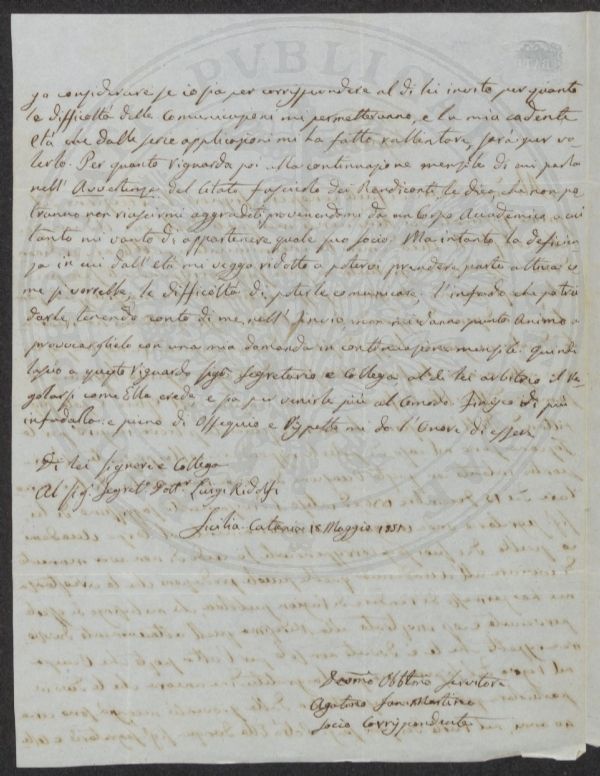 PVBLICA
ga considerare se io sia per corrispondere al di lei invito per quanto
le difficoltà delle Comunicazioni mi permetteranno, e la mia cadente
età che dalle serie applicazioni mi ha fatto rallentare, sarà per vo-
lerlo. Per quanto riguarda poi alla continuazione mensile di cui parla
nell' Avvertenza del citato fascicolo dei Rendiconti, le dico, che non po-
tranno non riuscirmi aggraditi provenendomi da un Corpo Accademico a cui
tanto mi vanto di appartenere quale suo socio. Ma intanto la deficien-
za in cui dall' età mi veggo ridotto a potervi prendere parte attiva co-
me si vorrebbe, le difficoltà di poterle comunicare, l'infado che potrà
darle tenendo conto di me nell' Invio, non mi danno punto animo a
provocarglielo con una mia domanda in continuazione mensile. Quindi
lascio a questo riguardo Sigr Segretario e Collega al di lei arbitrio il re-
golarsi come Ella creda e sia per venirle più al comodo. Finisco di più
infadarla: e pieno di Ossequio e Rispetto mi do l'Onore di essere
Di Lei Signore e Collega
Al Sigr Segretr Dottr Luigi Ridolfi
Sicilia-Catania 18 Maggio 1851
Devmo Obblmo Servitore
Agatino San Martino
Socio Corrispondente